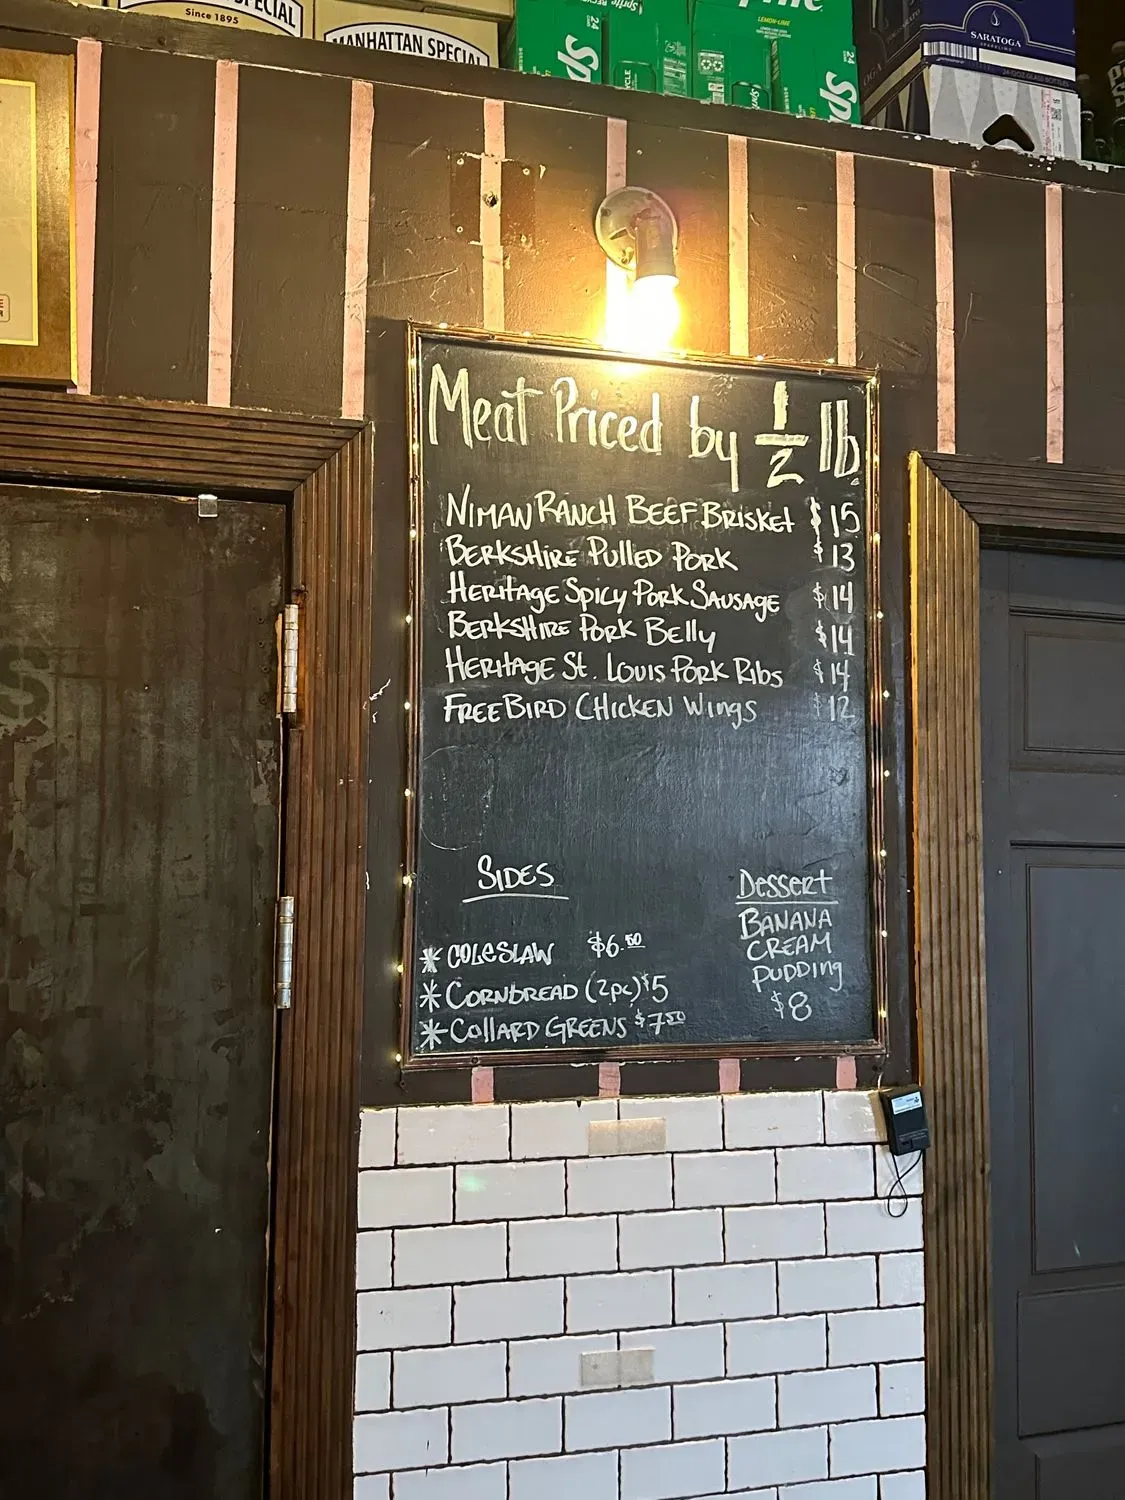 SPECIAL
Since 1895
MANHATTAN SPECIAL
Sprite
LEMON-LIME
SARATOGA
Meat Priced by 1/2 lb
NIMAN RANCH BEEF BRISKET $15
BERKSHIRE PULLED PORK $13
HERITAGE SPICY PORK SAUSAGE $14
BERKSHIRE PORK BELLY $14
HERITAGE ST. LOUIS PORK RIBS $14
FREEBIRD CHICKEN WINGS $12
SIDES
* COLESLAW $6.50
* CORNBREAD (2pc) $5
* COLLARD GREENS $7.50
Dessert
BANANA
CREAM
PUDDING
$8